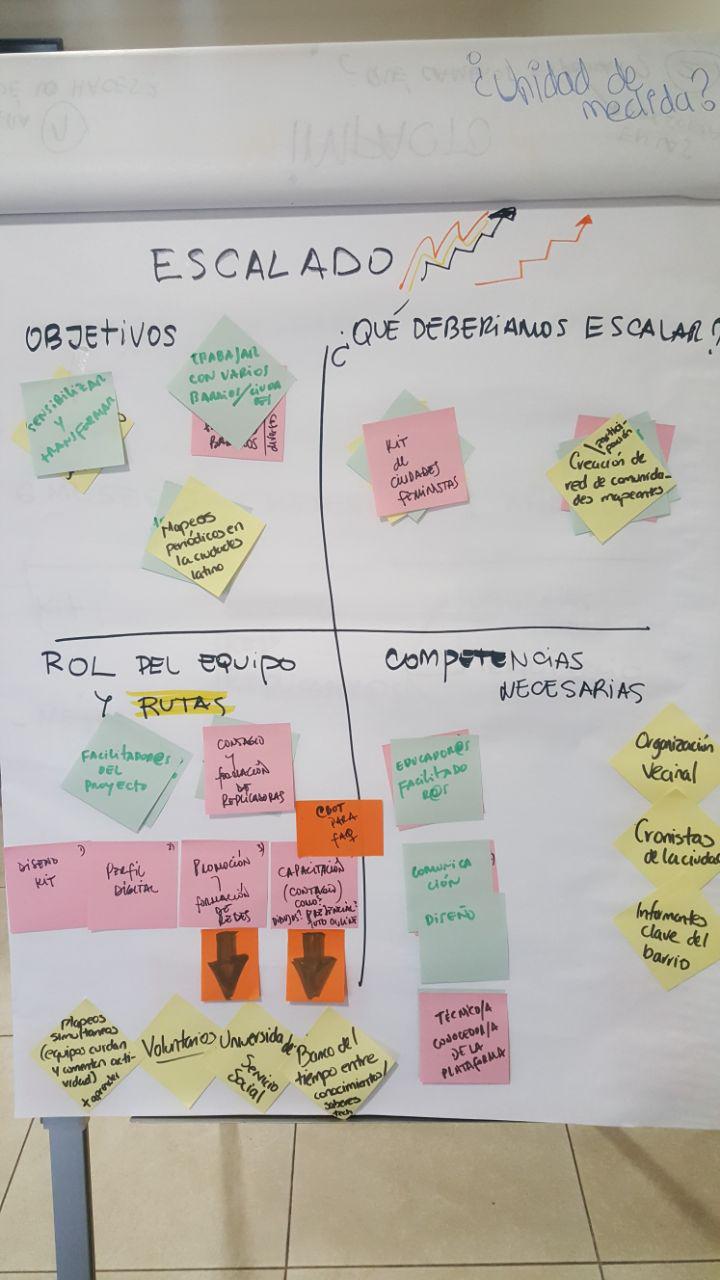 ¿Unidad de
medida?
ESCALADO
OBJETIVOS
SENSIBILIZAR
Y
TRANSFORMAR
TRABAJAR
CON VARIOS
BARRIOS/CIUDA
DES
Mapeos
periódicos en
la ciudades
latino
¿QUÉ DEBERIAMOS ESCALAR?
KIT
de
CIUDADES
FEMINISTAS
participación
Creación de
red de comunida-
des mapeantes
ROL DEL EQUIPO
Y RUTAS
FACILITADOR@S
DEL
PROYECTO
CONTAGIO
Y
FORMACIÓN
DE
REPLICADORAS
CBOT
PARA
FAQ
1)
DISEÑO
KIT
2)
PERFIL
DIGITAL
3)
PROMOCIÓN
Y
FORMACIÓN
DE
REDES
CAPACITACIÓN
(CONTAGIO)
COMO?
PRESENCIAL?
TUTO ONLINE
Mapeos
simultaneos
(equipos cuidan
y comenten acti-
vidad)
+ aprender
Voluntarios
Universidades
Servicio
Social
Banco del
tiempo entre
conocimientos/
saberes
tech
COMPETENCIAS
NECESARIAS
EDUCADOR@S
FACILITADO
R@S
COMUNICA
CIÓN
DISEÑO
TÉCNICO/A
CONOCEDOR/A
DE LA
PLATAFORMA
Organización
Vecinal
Cronistas
de la ciudad
Informantes
clave del
barrio